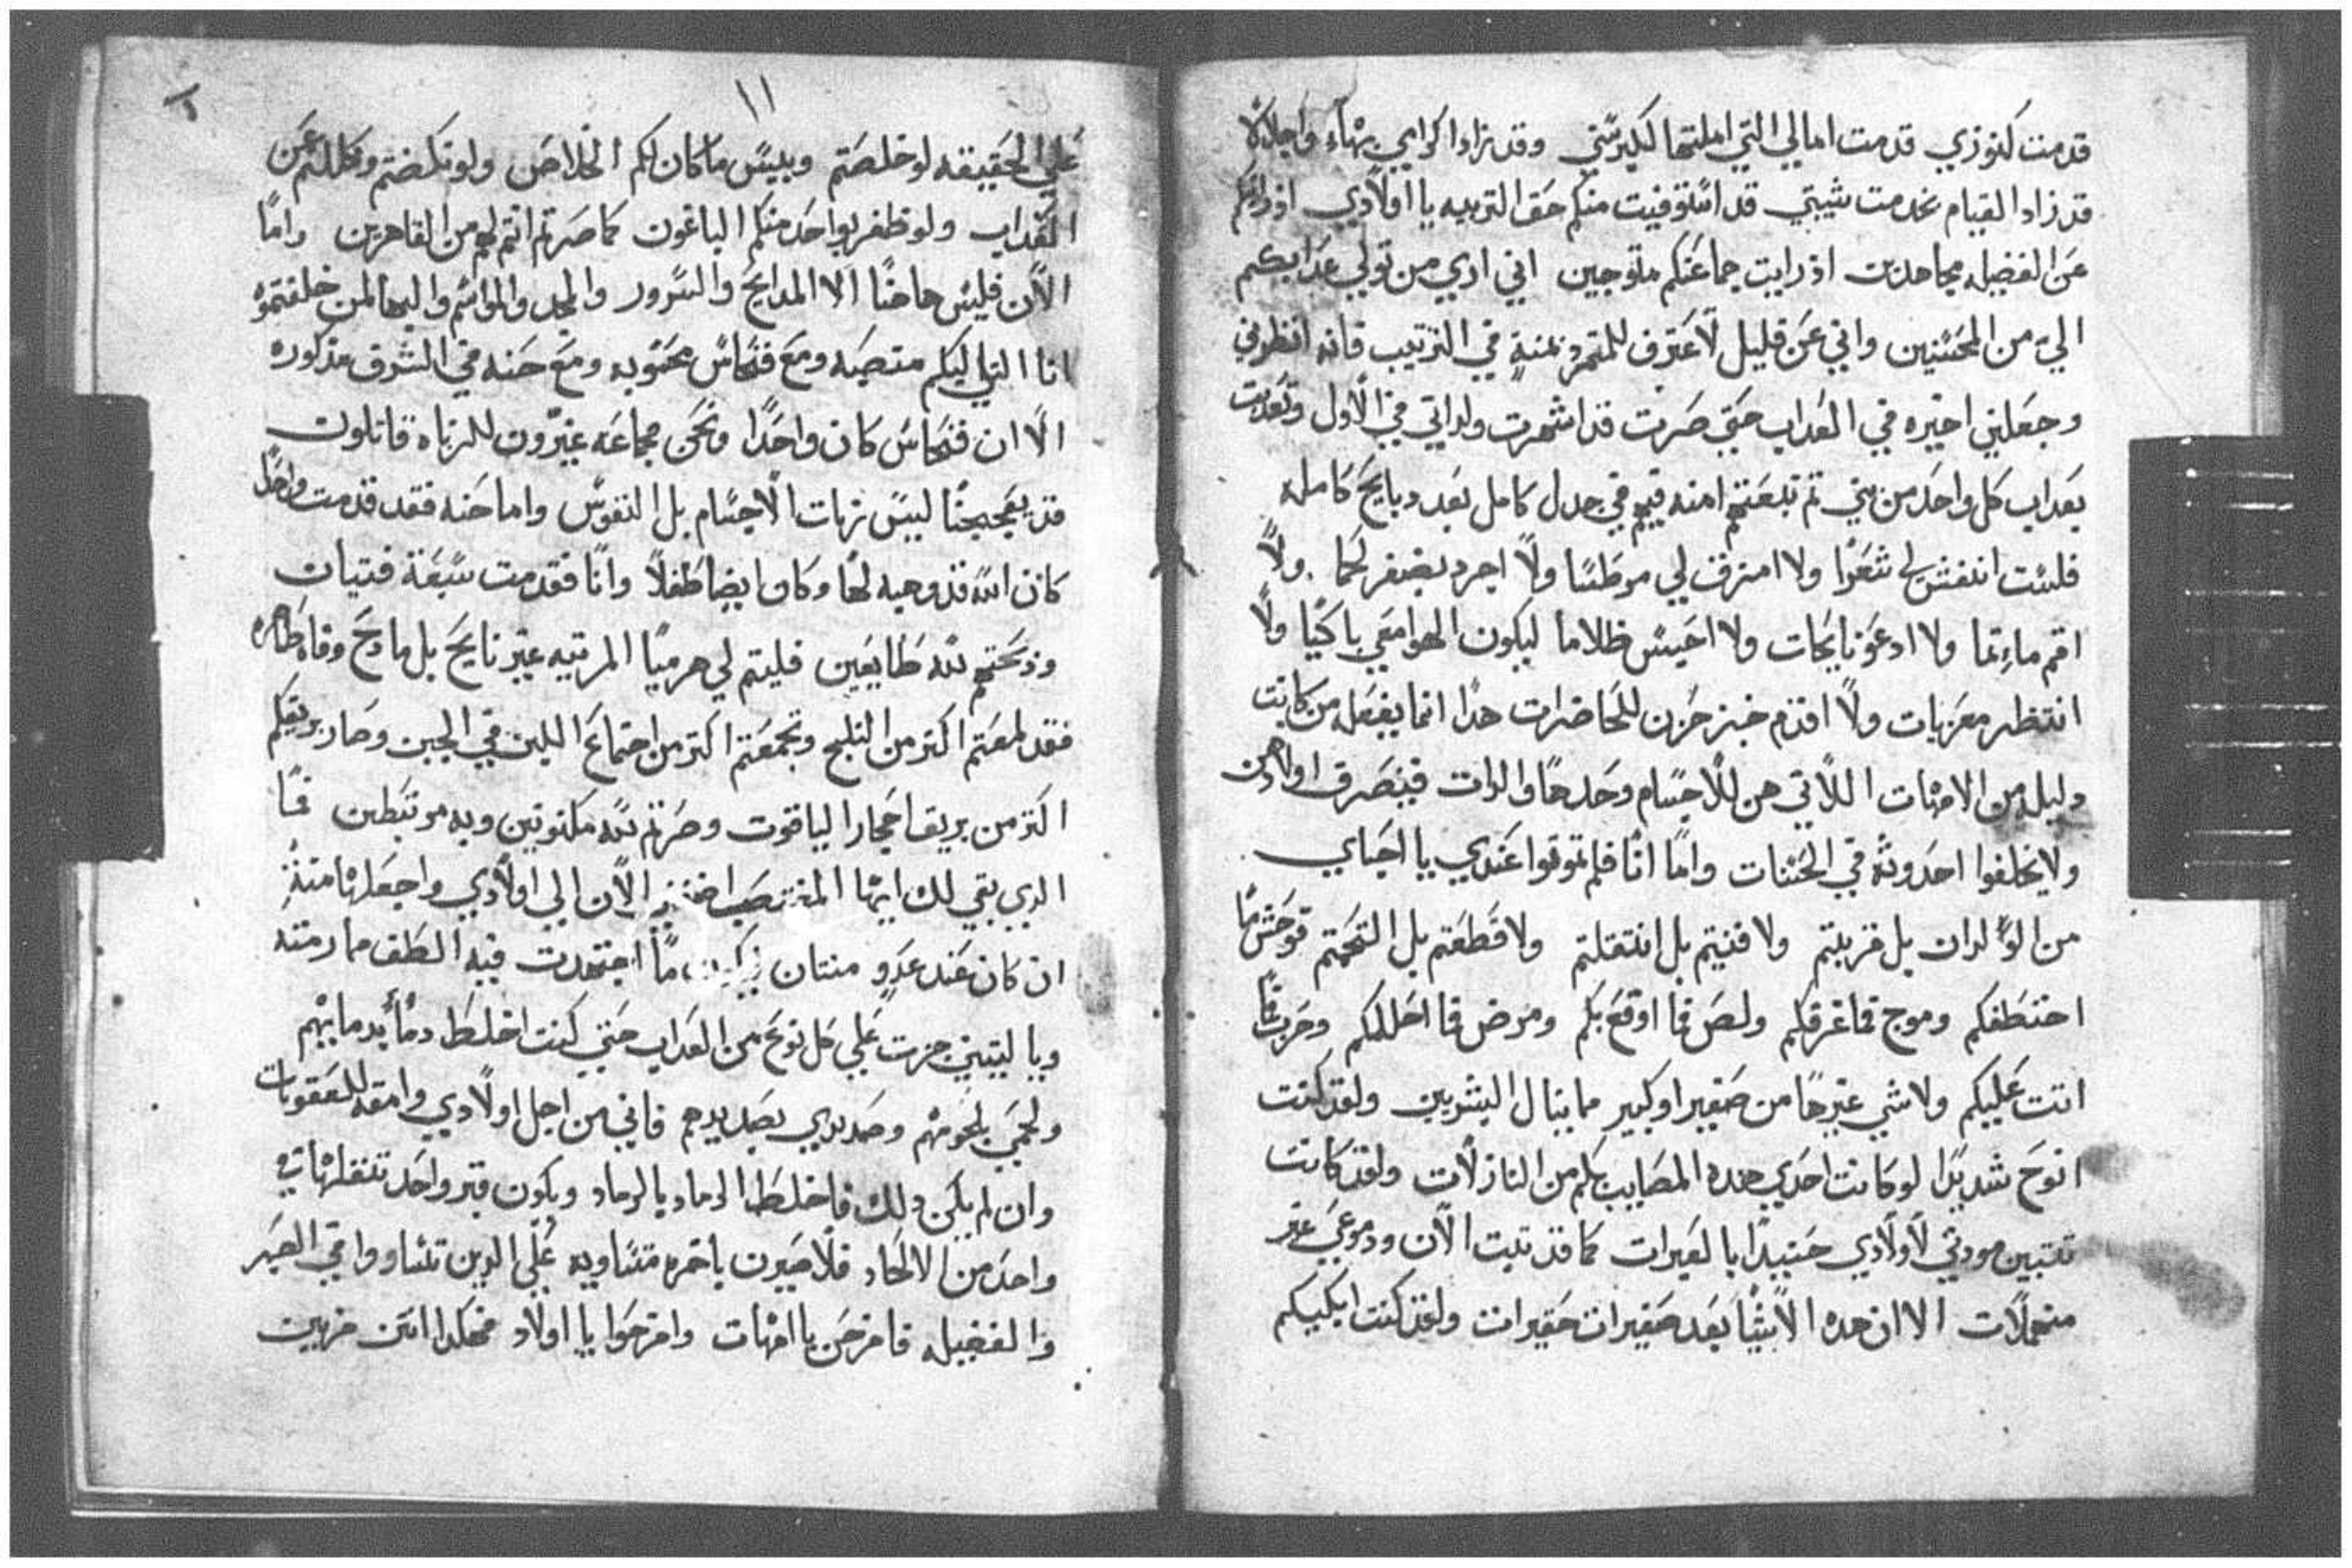 قدمت كنوزي قدمت امالي التي املتها لكبر سني وقد زاد اكرامي بهاء واجلالا
قد زاد القيام بخدمت شيبتي قد استوفيت منكم حق التربيه يا اولادي اذ رايتكم
عن الفضيله مجاهدين اذ رايت جماعتكم متوجين اني اري من تولي عدابكم
الي من المحسنين واني عن قليل لاعترف للمتمرد بمنة في الترتيب فانه انظرني
وجعلني اخيره في العداب حتي صرت قد اشهرت ولداتي في الاول وتعدبت
بعداب كل واحد من بني تم تبعتهم امنه فيهم في جدل كامل بعد دبايح كامله
فلست انتفش لي شعرا ولا امزق لي مرطسا ولا اجرد بضفر لحما ولا
اقم ماءتما ولا ادعو نايحات ولا احبس ظلاما ليكون الهوا معي باكيا ولا
انتظر معزيات ولا اقدم خبز حزن للحاضرات هدا انما يفعله من كانت
دليله من الامهات اللاتي هن للاجسام وحدها والدات فينصرف اولادهن
ولا يخلفوا احدوثه في الحسنات واما انا فلم تموتوا عندي يا احباي
من الوالدان بل قربتم ولا فنيتم بل انتقلتم ولا قطعتم بل التحمتم فوحش ما
اختطفكم وموج فما غرقكم ولص فما اوقع بكم ومرض فما احللكم وحرب فما
اتت عليكم ولا شي غيرها من صغير او كبير مما ينال البشريين ولقد كنت
انوح شديدا لو كانت احدي هده المصايب بكم من النازلات ولقد كانت
تتبين مودتي لاولادي حينيدا بالعبرات كما قد تبت الان ودموعي غير
منهملات الا ان هده الاشيا بعد صغيرات حقيرات ولقد كنت ابكيكم
١١
علي الحقيقه لو خلصتم وبيس ما كان لكم الخلاص ولو نكصتم وكللتم عن
العداب ولو ظفر بواحد منكم الباغون كما صرتم انتم لهم من القاهرين واما
الان فليس هاهنا الا المدايح والسرور والمجد والمواسم والبها لمن خلفتموه
انا التي اليكم منصبه ومع فنحاس محسوبه ومع حنه في الشرف مذكوره
الا ان فنحاس كان واحدا ونحن مجاعه غيرون للزناه قاتلون
قد بعجت ليس زيات الاجسام بل النفوس واما حنه فقد قدمت واحدا
كان الله قد وهبه لها وكان ايضا طفلا وانا فقدمت سبعة فتيان
وذبحتهم لله طايعين فليتم لي هرميا المرتيه غير نايح بل مادح وفاه طاهره
فقد لمعتم اكتر من التلج وتجمعتم اكتر من اجتماع اللبن في الجبن وصار بريقكم
اكتر من بريق احجار الياقوت وصرتم لله مكنونين وبه مرتبطين فما
الدي بقي لك ايها المغتصب الان الي اولادي واجعلها منة
ان كان عند عدو منتان ما اجتهدت فيه الطف ما رمته
ويا ليتني جزت علي كل نوع من العداب حتي كنت اخلط دما بدمايهم
ولحمي بلحومهم وصديدي بصديدهم فاني من اجل اولادي وامقه للعقوبات
وان لم يكن دلك فاخلط الرماد بالرماد ويكون قبر واحد
واحد من الالحاد فلا حيرون باخره متساويه علي الدين تساووا في الصبر
والفضيله فافرحن يا امهات وافرحوا يا اولاد فهكدا انتن مربيين